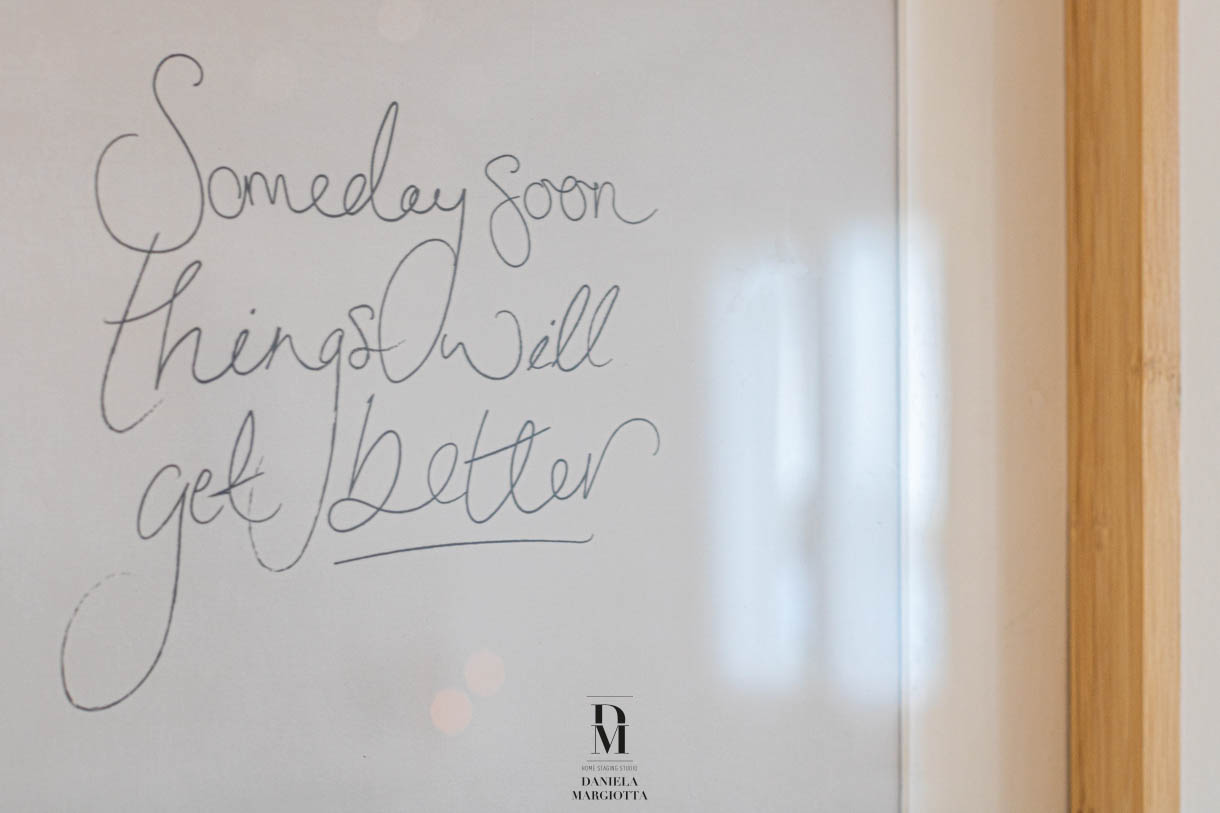 Someday soon
things will
get better
DM
HOME STAGING STUDIO
DANIELA
MARGIOTTA